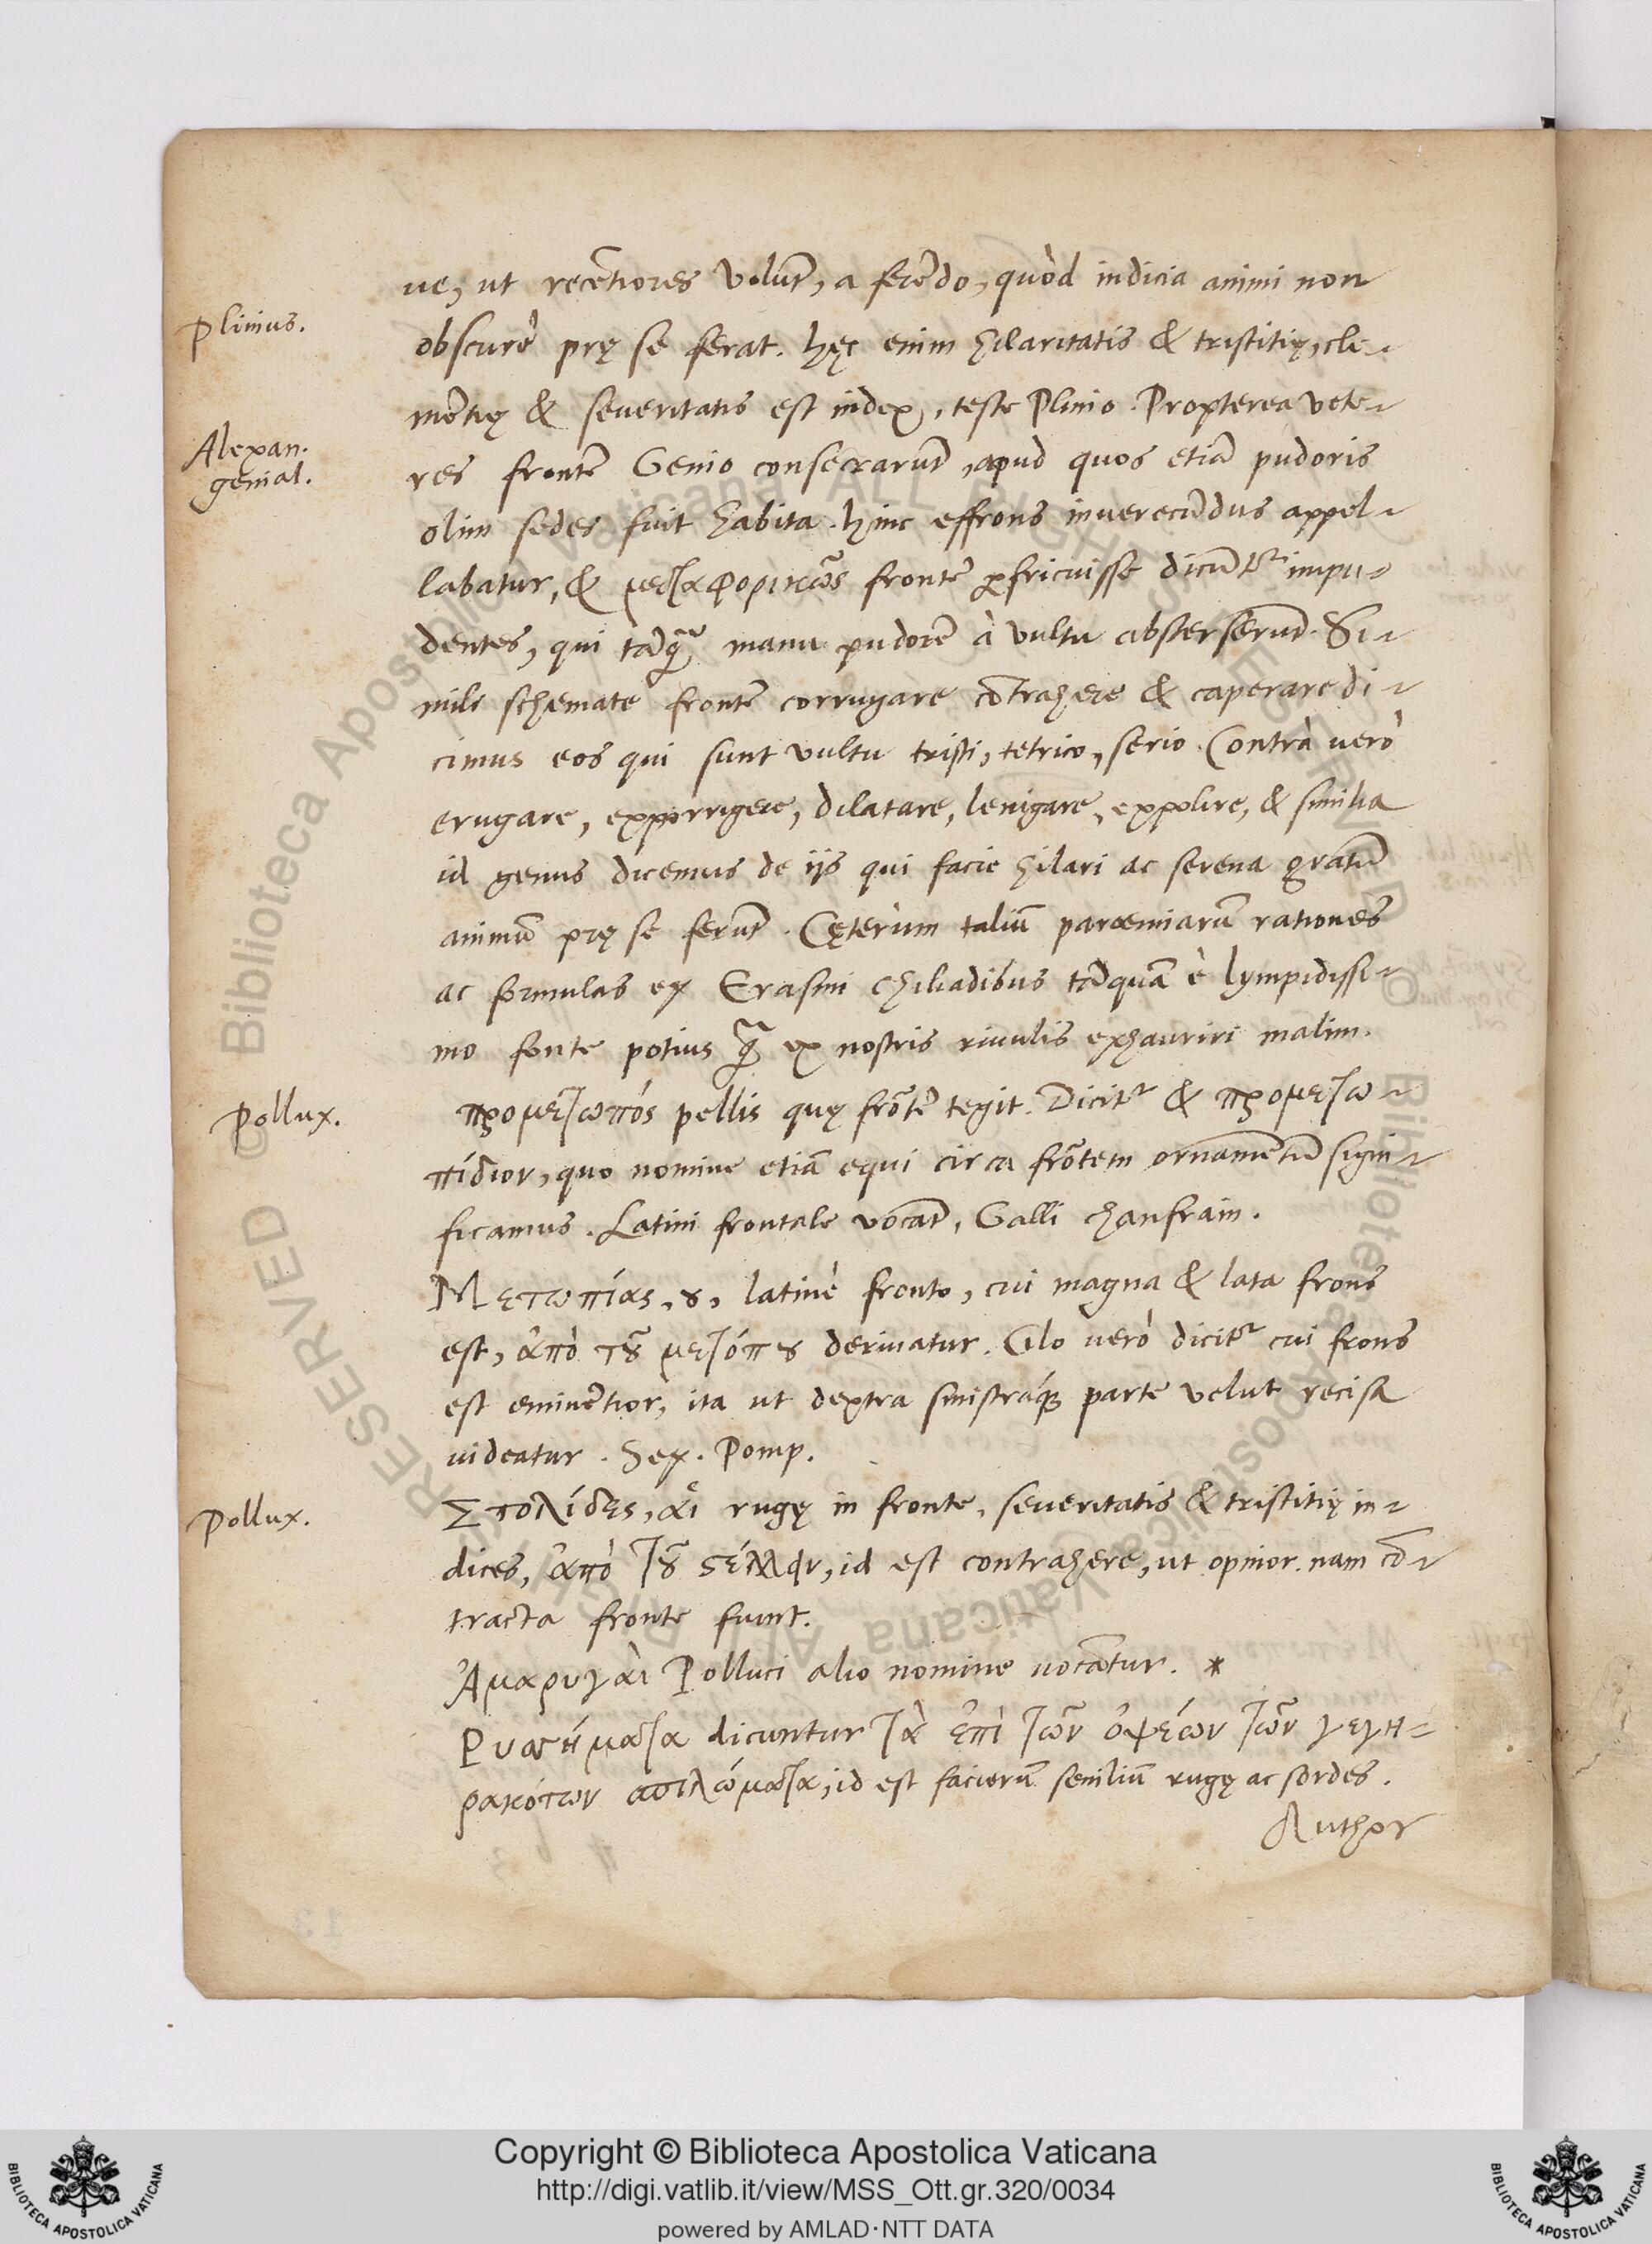 ue, ut recẽtiores volũt, a ferẽdo, quòd indicia animi non
Plinius.
obscurè prę se ferat. hęc enim hilaritatis & tristitię, cle-
mẽtię & seueritatis est index, teste Plinio. Propterea vete-
Alexan.
genial.
res frontẽ Genio consecrarũt, apud quos etiã pudoris
olim sedes fuit habita. hinc effrons inuerecũdus appel-
labatur, & μεταφορικῶς frontẽ ꝑfricuisse dicũtᷣ impu-
dentes, qui tãq̃ manu pudorẽ à vultu absterserũt. Si-
mile schemate frontẽ corrugare cõtrahere & caperare di-
cimus eos qui sunt vultu tristi, tetrico, serio. Contrà uerò
erugare, exporrigere, dilatare, leuigare, expolire, & similia
id genus dicemus de ijs qui facie hilari ac serena gratũ
animũ prę se ferũt. Cęterùm taliũ parœmiarũ rationes
ac formulas ex Erasmi chiliadibus tãquã è lympidissi-
mo fonte potius q̃ ex nostris riuulis exhauriri malim.
Pollux.
προμετωπός pellis quę frõtẽ tegit. Dicitᷣ & προμετω-
πίδιον, quo nomine etiã equi circa frõtem ornamẽtũ signi-
ficamus. Latini frontale vocãt, Galli chanfrain.
Μετωπίας, ȣ, latinè fronto, cui magna & lata frons
est, ἀπὸ τȣ͂ μετόπȣ deriuatur. Cilo uerò dicitᷣ cui frons
est eminẽtior, ita ut dextra sinistráq; parte velut recisa
uideatur. Sex. Pomp.
Pollux.
Στολίδες, αἱ rugę in fronte, seueritatis & tristitię in-
dices, ἀπὸ τȣ͂ ϛέλλειν, id est contrahere, ut opinor. nam cõ-
tracta fronte fiunt.
Ἀμαρυγαὶ Polluci alio nomine uocãtur. *
Ρυσήματα dicuntur τὰ ἐπὶ τῶν ὀψέων τῶν γεγη-
ρακότων σπιλώματα, id est facierũ seniliũ rugę ac sordes.
Author
Copyright © Biblioteca Apostolica Vaticana
http://digi.vatlib.it/view/MSS_Ott.gr.320/0034
powered by AMLAD·NTT DATA